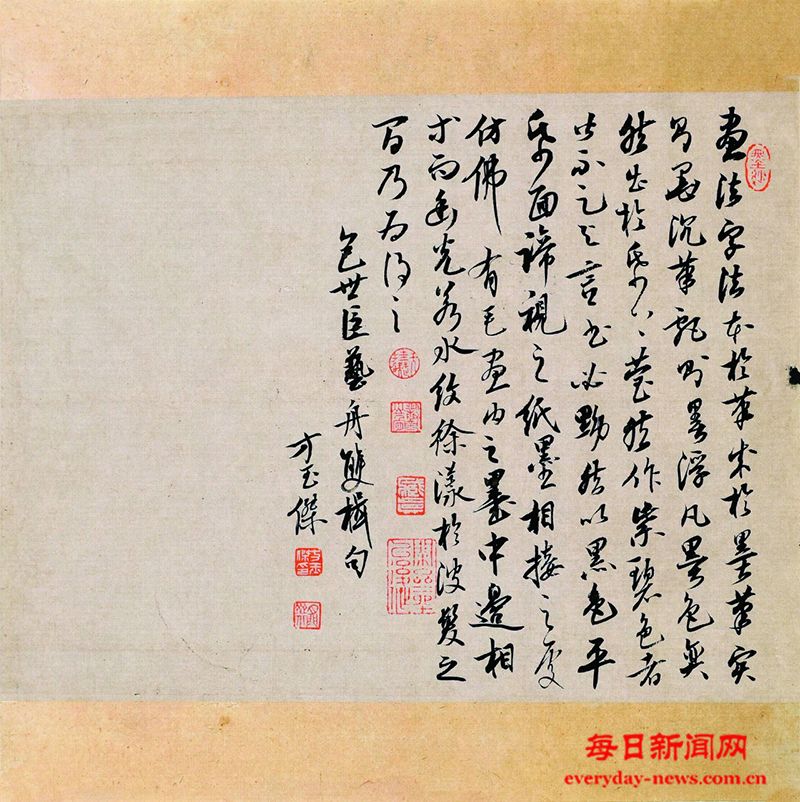 畫法字法本於筆成於墨筆实
則墨沉筆飄則墨浮凡墨色奕
然出於帋上瑩然作紫碧色者
皆不足与言书必黝然以黑色平
帋面諦視之紙墨相接之處
仿佛有毛畫内之墨中邊相
等而幽光若水紋徐漾於波发之
间乃为得之
包世臣藝舟雙楫句
方玉傑
每日新闻网
everyday-news.com.cn